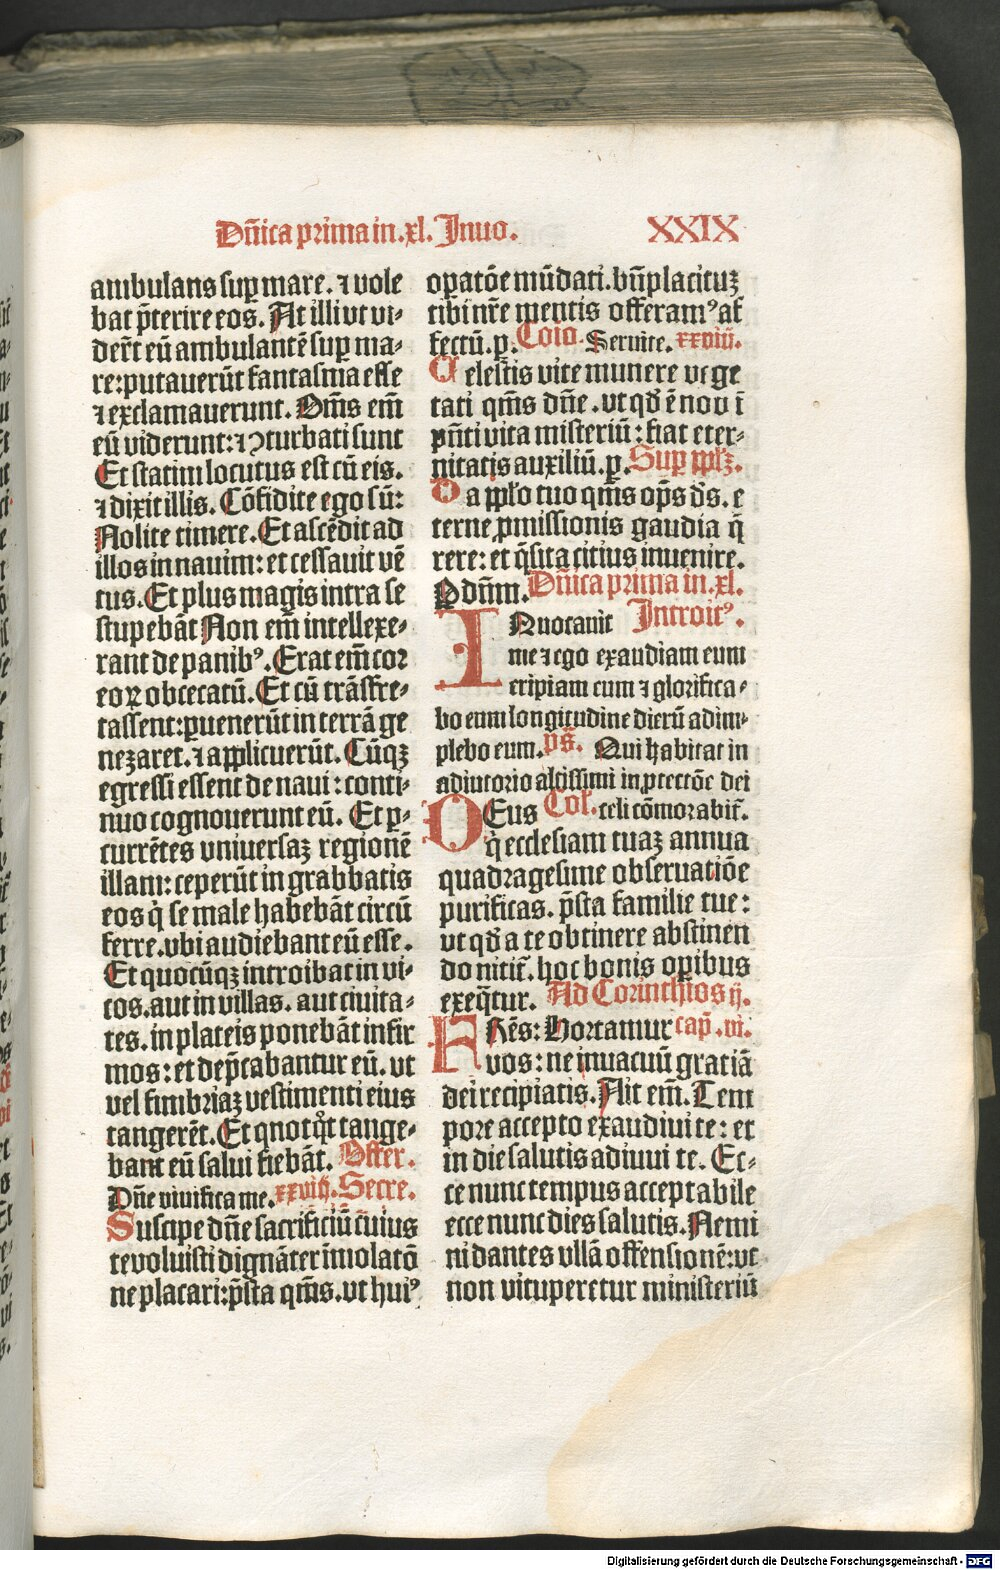 Dñica prima in .xl. Inuo.
XXIX
ambulans suꝑ mare. ⁊ vole
bat p̄terire eos. At illi vt vi⸗
der̄t eū ambulantē suꝑ ma⸗
re: putauerūt fantasma esse
⁊ exclamauerunt. Om̄s em̄
eū viderunt: ⁊ ꝯturbati sunt
Et statim locutus est cū eis.
⁊ dixit illis. Cōfidite ego sū:
Nolite timere. Et ascēdit ad
illos in nauim: et cessauit vē
tus. Et plus magis intra se
stupebāt Non em̄ intellexe⸗
rant de panibꝰ. Erat em̄ cor
eoꝝ obcecatū. Et cū trāsfre⸗
tassent: ꝑuenerūt in terrā ge
nezaret. ⁊ applicuerūt. Cūqꝫ
egressi essent de naui: conti⸗
nuo cognouerunt eū. Et ꝑ⸗
currētes vniuersaꝫ regionē
illam: ceperūt in grabbatis
eos q̇ se male habebāt circū
ferre. vbi audiebant eū esse.
Et quocūqꝫ introibat in vi⸗
cos. aut in villas. aut ciuita⸗
tes. in plateis ponebāt infir
mos: et dep̄cabantur eū. vt
vel fimbriaꝫ vestimenti eius
tangerēt. Et qnotqͦt tange⸗
bant eū salui fiebāt. Offer.
Dn̄e viuifica me. xxviij. Secre.
Suscipe dn̄e sacrificiū cuius
te voluisti dignāter īmolatō
ne placari: p̄sta qm̄s. vt huiꝰ
oꝑatōe mūdati. bn̄placituꝫ
tibi nr̄e mentis offeramꝰ af
fectū. ꝑ. Cōio. Seruite. xxviii.
Celestis vite munere vege
tati qm̄s dn̄e. vt qd̄ ē nobi ī
pn̄ti vita misteriū: fiat eter⸗
nitatis auxiliū. ꝑ. Sup pp̄lꝫ.
Da pp̄lo tuo qm̄s op̄s ds̄. e
terne ꝓmissionis gaudia q̄
rere: et q̄sita citius inuenire.
P dn̄m. Dñica prima in .xl.
Introitꝰ.
INuocauit
me ⁊ ego exaudiam eum
eripiam eum ⁊ glorifica⸗
bo eum longitudine dierū adim⸗
plebo eum. ps̄. Qui habitat in
adiutorio altissimi in ꝓtectōe dei
DEus Col̄. celi cōmorabit̄.
q̇ ecclesiam tuaꝫ annua
quadragesime obseruatiōe
purificas. p̄sta familie tue:
vt qd̄ a te obtinere abstinen
do nitit̄. hoc bonis oꝑibus
exeq̄tur. Ad Corinthios ij.
FRēs: Hortamur cap̄. vi.
vos: ne in vacuū gratiā
dei recipiatis. Ait em̄. Tem
pore accepto exaudiui te: et
in die salutis adiuui te. Ec⸗
ce nunc tempus acceptabile
ecce nunc dies salutis. Nemi
ni dantes vllā offensionē: vt
non vituperetur ministeriū
Digitalisierung gefördert durch die Deutsche Forschungsgemeinschaft - DFG